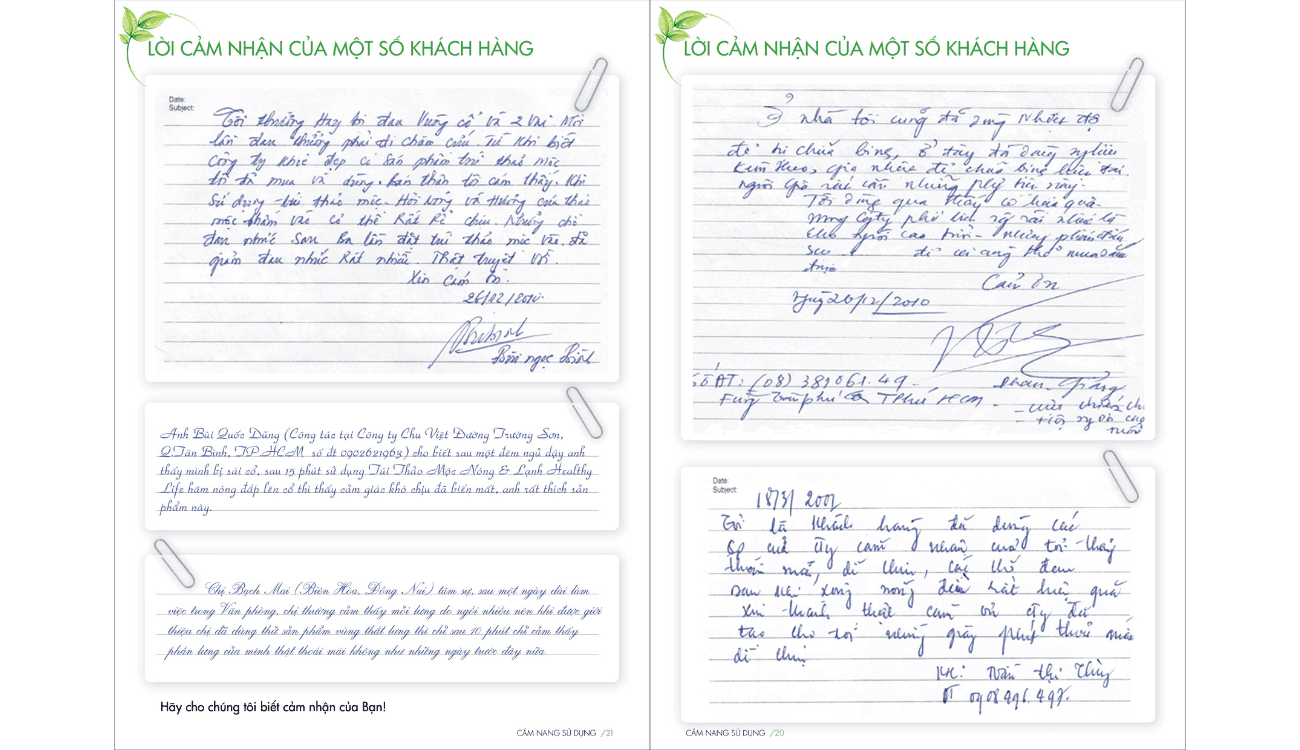 LỜI CẢM NHẬN CỦA MỘT SỐ KHÁCH HÀNG
Date:
Subject:
Tôi thường Hay bị đau Vướng cổ và 2 Vai Mỗi
lần đau thường phải đi châm cứu. Từ Khi biết
Công ty Khỏe đẹp có Sản phẩm túi thảo mộc
tôi đã mua và dùng. bản thân tô cảm thấy. Khi
Sử dụng túi thảo mộc. Hơi nóng và Hương của thảo
mộc thấm vào cơ thể Rất Rễ chịu. Những chỗ
đau nhức Sau Ba lần đặt túi thảo mộc vào. đã
giảm đau nhức Rất nhiều. Thật tuyệt vời.
Xin Cám ơn.
26/12/2010.
Bùi ngọc
Anh Bùi Quốc Dũng (Công tác tại Công ty Chu Việt Đường Trường Sơn,
Q.Tân Bình, TP.HCM số đt 0902621963) cho biết sau một đêm ngủ dậy anh
thấy mình bị sái cổ, sau 15 phút sử dụng Túi Thảo Mộc Nóng & Lạnh Healthy
Life hâm nóng đắp lên cổ thì thấy cảm giác khó chịu đã biến mất, anh rất thích sản
phẩm này.
Chị Bạch Mai (Biên Hòa, Đồng Nai) tâm sự, sau một ngày dài làm
việc trong Văn phòng, chị thường cảm thấy mỏi lưng do ngồi nhiều nên khi được giới
thiệu chị đã dùng thử sản phẩm vùng thắt lưng thì chỉ sau 10 phút chị cảm thấy
phần lưng của mình thật thoải mái không như những ngày trước đây nữa.
Hãy cho chúng tôi biết cảm nhận của Bạn!
CẨM NANG SỬ DỤNG /21
LỜI CẢM NHẬN CỦA MỘT SỐ KHÁCH HÀNG
Ở nhà tôi cũng đã dùng nhiệt độ
để trị chữa bệnh, Ở đây đã dùng
người già rất cần những
Tôi dùng qua thấy có hiệu quả.
mong Cty phổ biến rộng rãi nhất là
cho người cao tuổi -
để ai cũng có thể mua
được
Cảm ơn
Ngày 26/12/2010
Số ĐT: (08) 381061.49 -
HCM -
Date:
Subject:
18/3/
Tôi là Khách hàng đã dùng các
Sp của Cty cảm nhận của tôi thấy
thoải mái, dễ chịu,
sau khi xong nóng đều rất hiệu quả
xin thành thật cảm ơn Cty đã
tạo cho tôi những giây phút thoải mái
dễ chịu
KH: Trần thị Thùy
ĐT 0908496.497.
CẨM NANG SỬ DỤNG /20